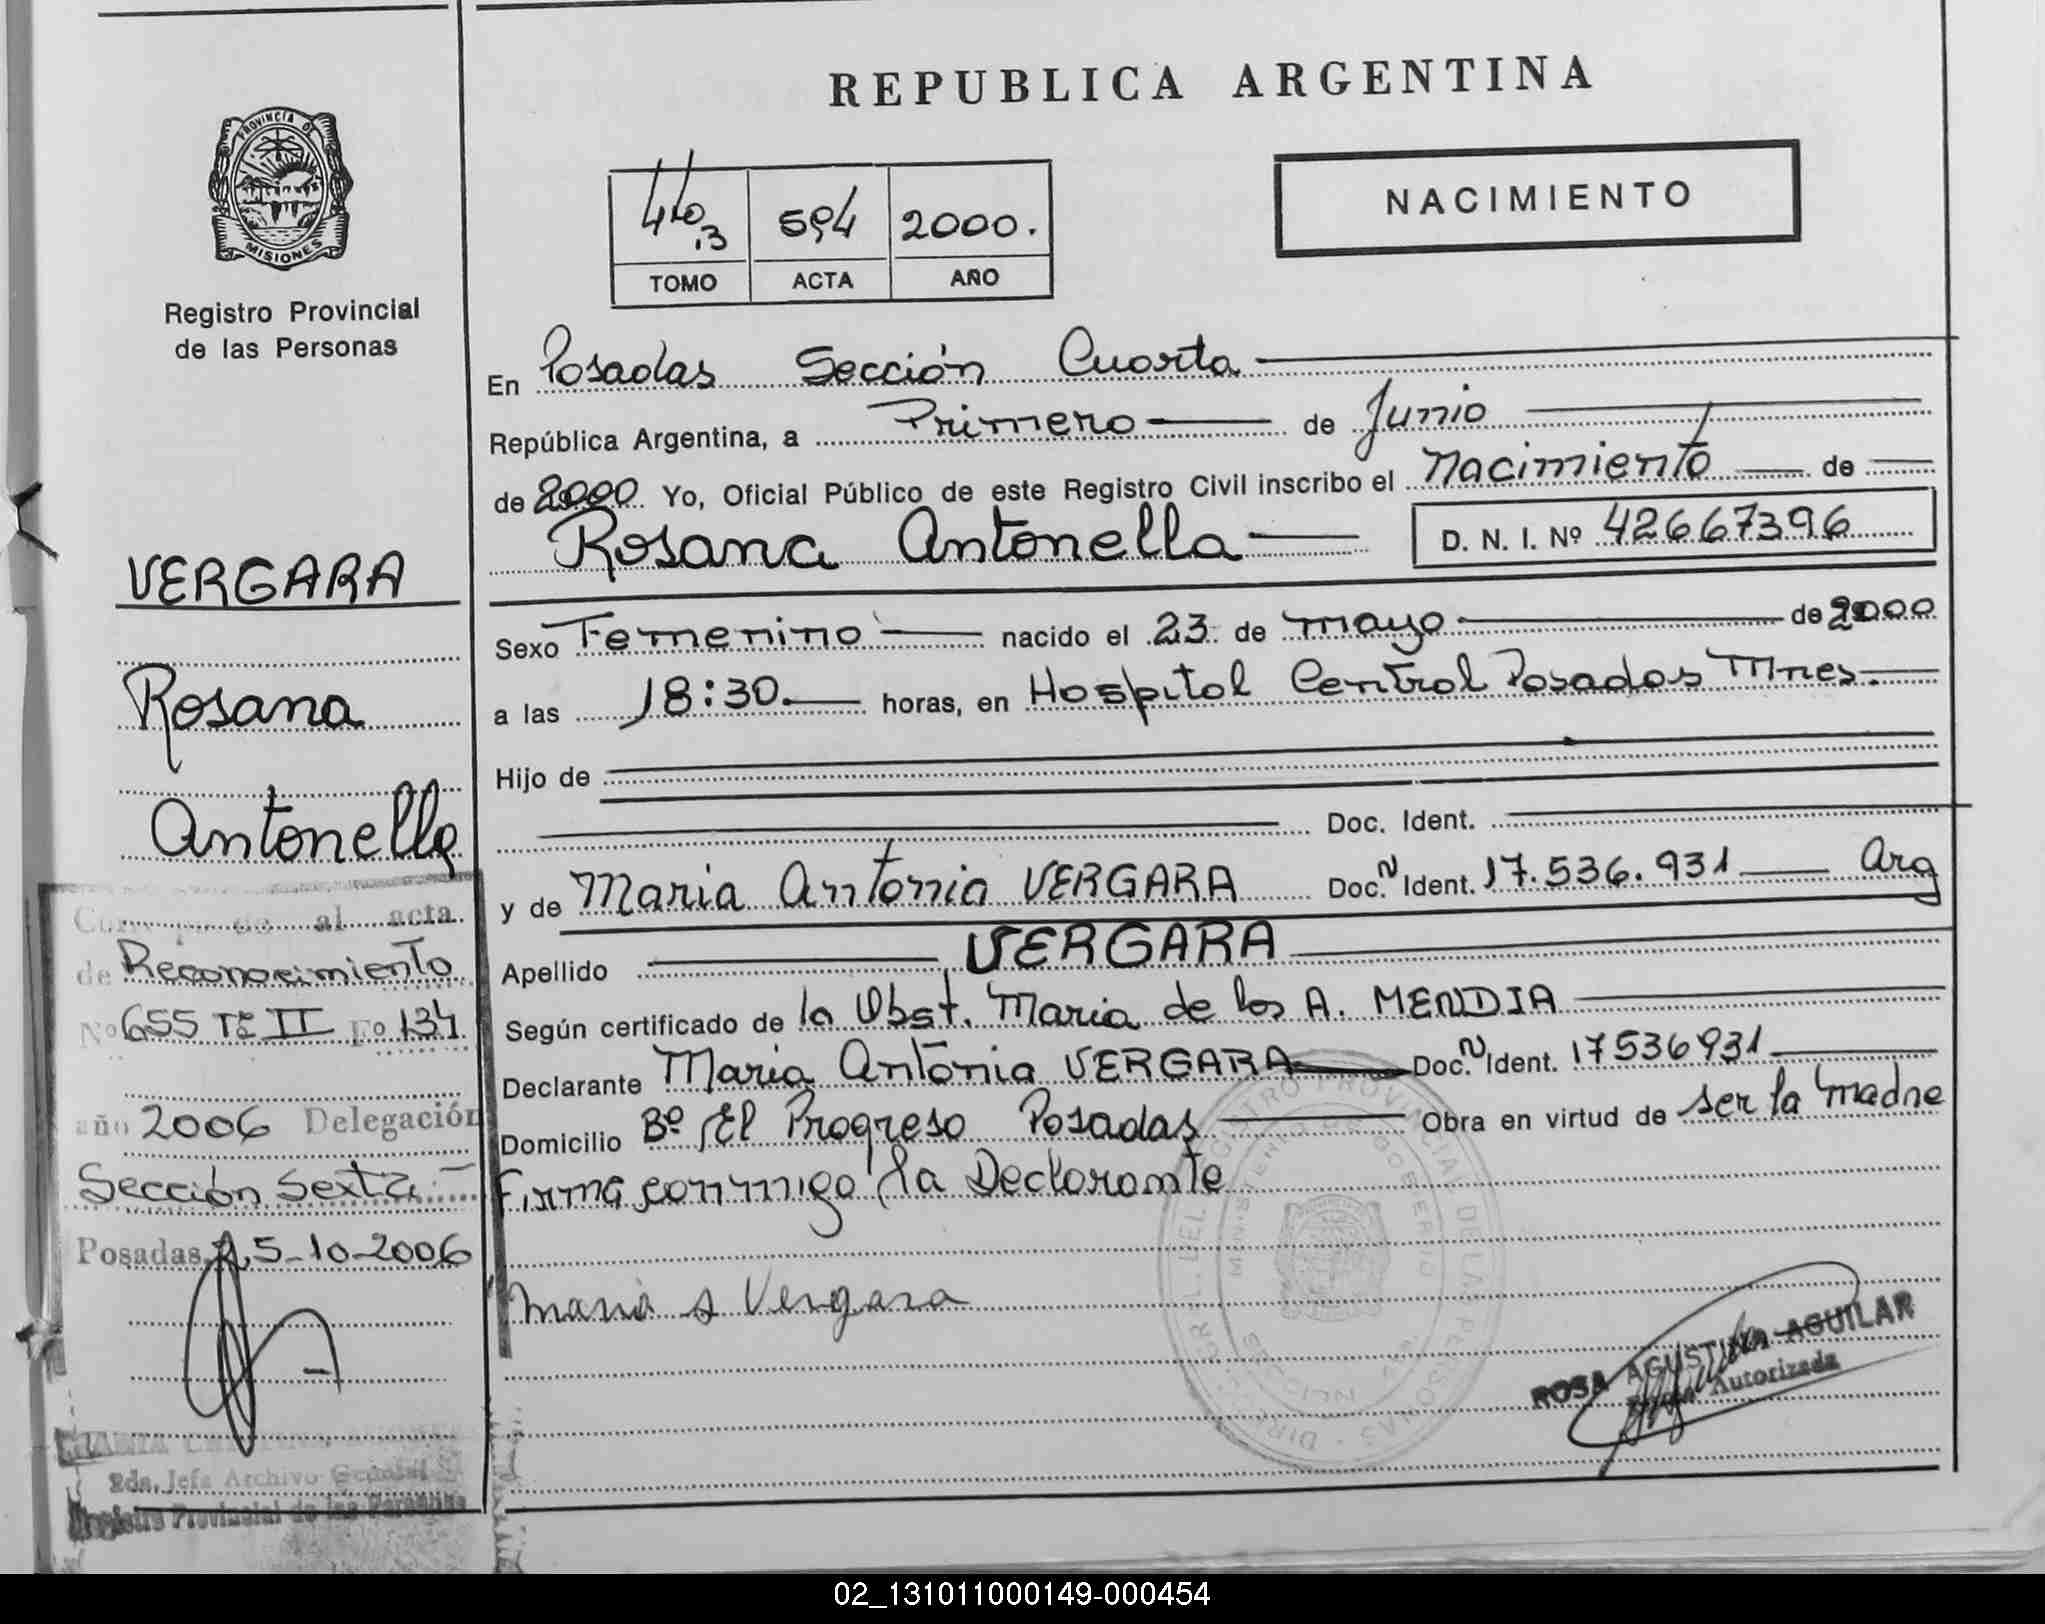 REPUBLICA ARGENTINA
PROVINCIA DE
MISIONES
Registro Provincial
de las Personas
NACIMIENTO
594 2000.
TOMO ACTA AÑO
En Posadas Sección Cuarta
República Argentina, a Primero de Junio
de 2000 Yo, Oficial Público de este Registro Civil inscribo el Nacimiento de
Rosana Antonella D. N. I. Nº 42667396
Sexo Femenino nacido el 23 de mayo de 2000
a las 18:30 horas, en Hospital Central Posadas Mnes.
Hijo de
Doc. Ident.
y de Maria Antonia VERGARA Doc. N Ident. 17.536.931 Arg
Apellido VERGARA
Según certificado de la Obst. Maria de los A. MENDIA
Declarante Maria Antonia VERGARA Doc. N Ident. 17536931
Domicilio Bº El Progreso Posadas Obra en virtud de ser la madre
Firma conmigo la Declarante
Maria A Vergara
ROSA AGUSTINA AGUILAR
Autorizada
VERGARA
Rosana
Antonella
al acta
de Reconocimiento
Nº 655 Tº II Fº 134
año 2006 Delegación
Sección Sexta
Posadas, 25-10-2006
MARIA
Jefa Archivo General
Registro Provincial de las Personas
02_131011000149-000454